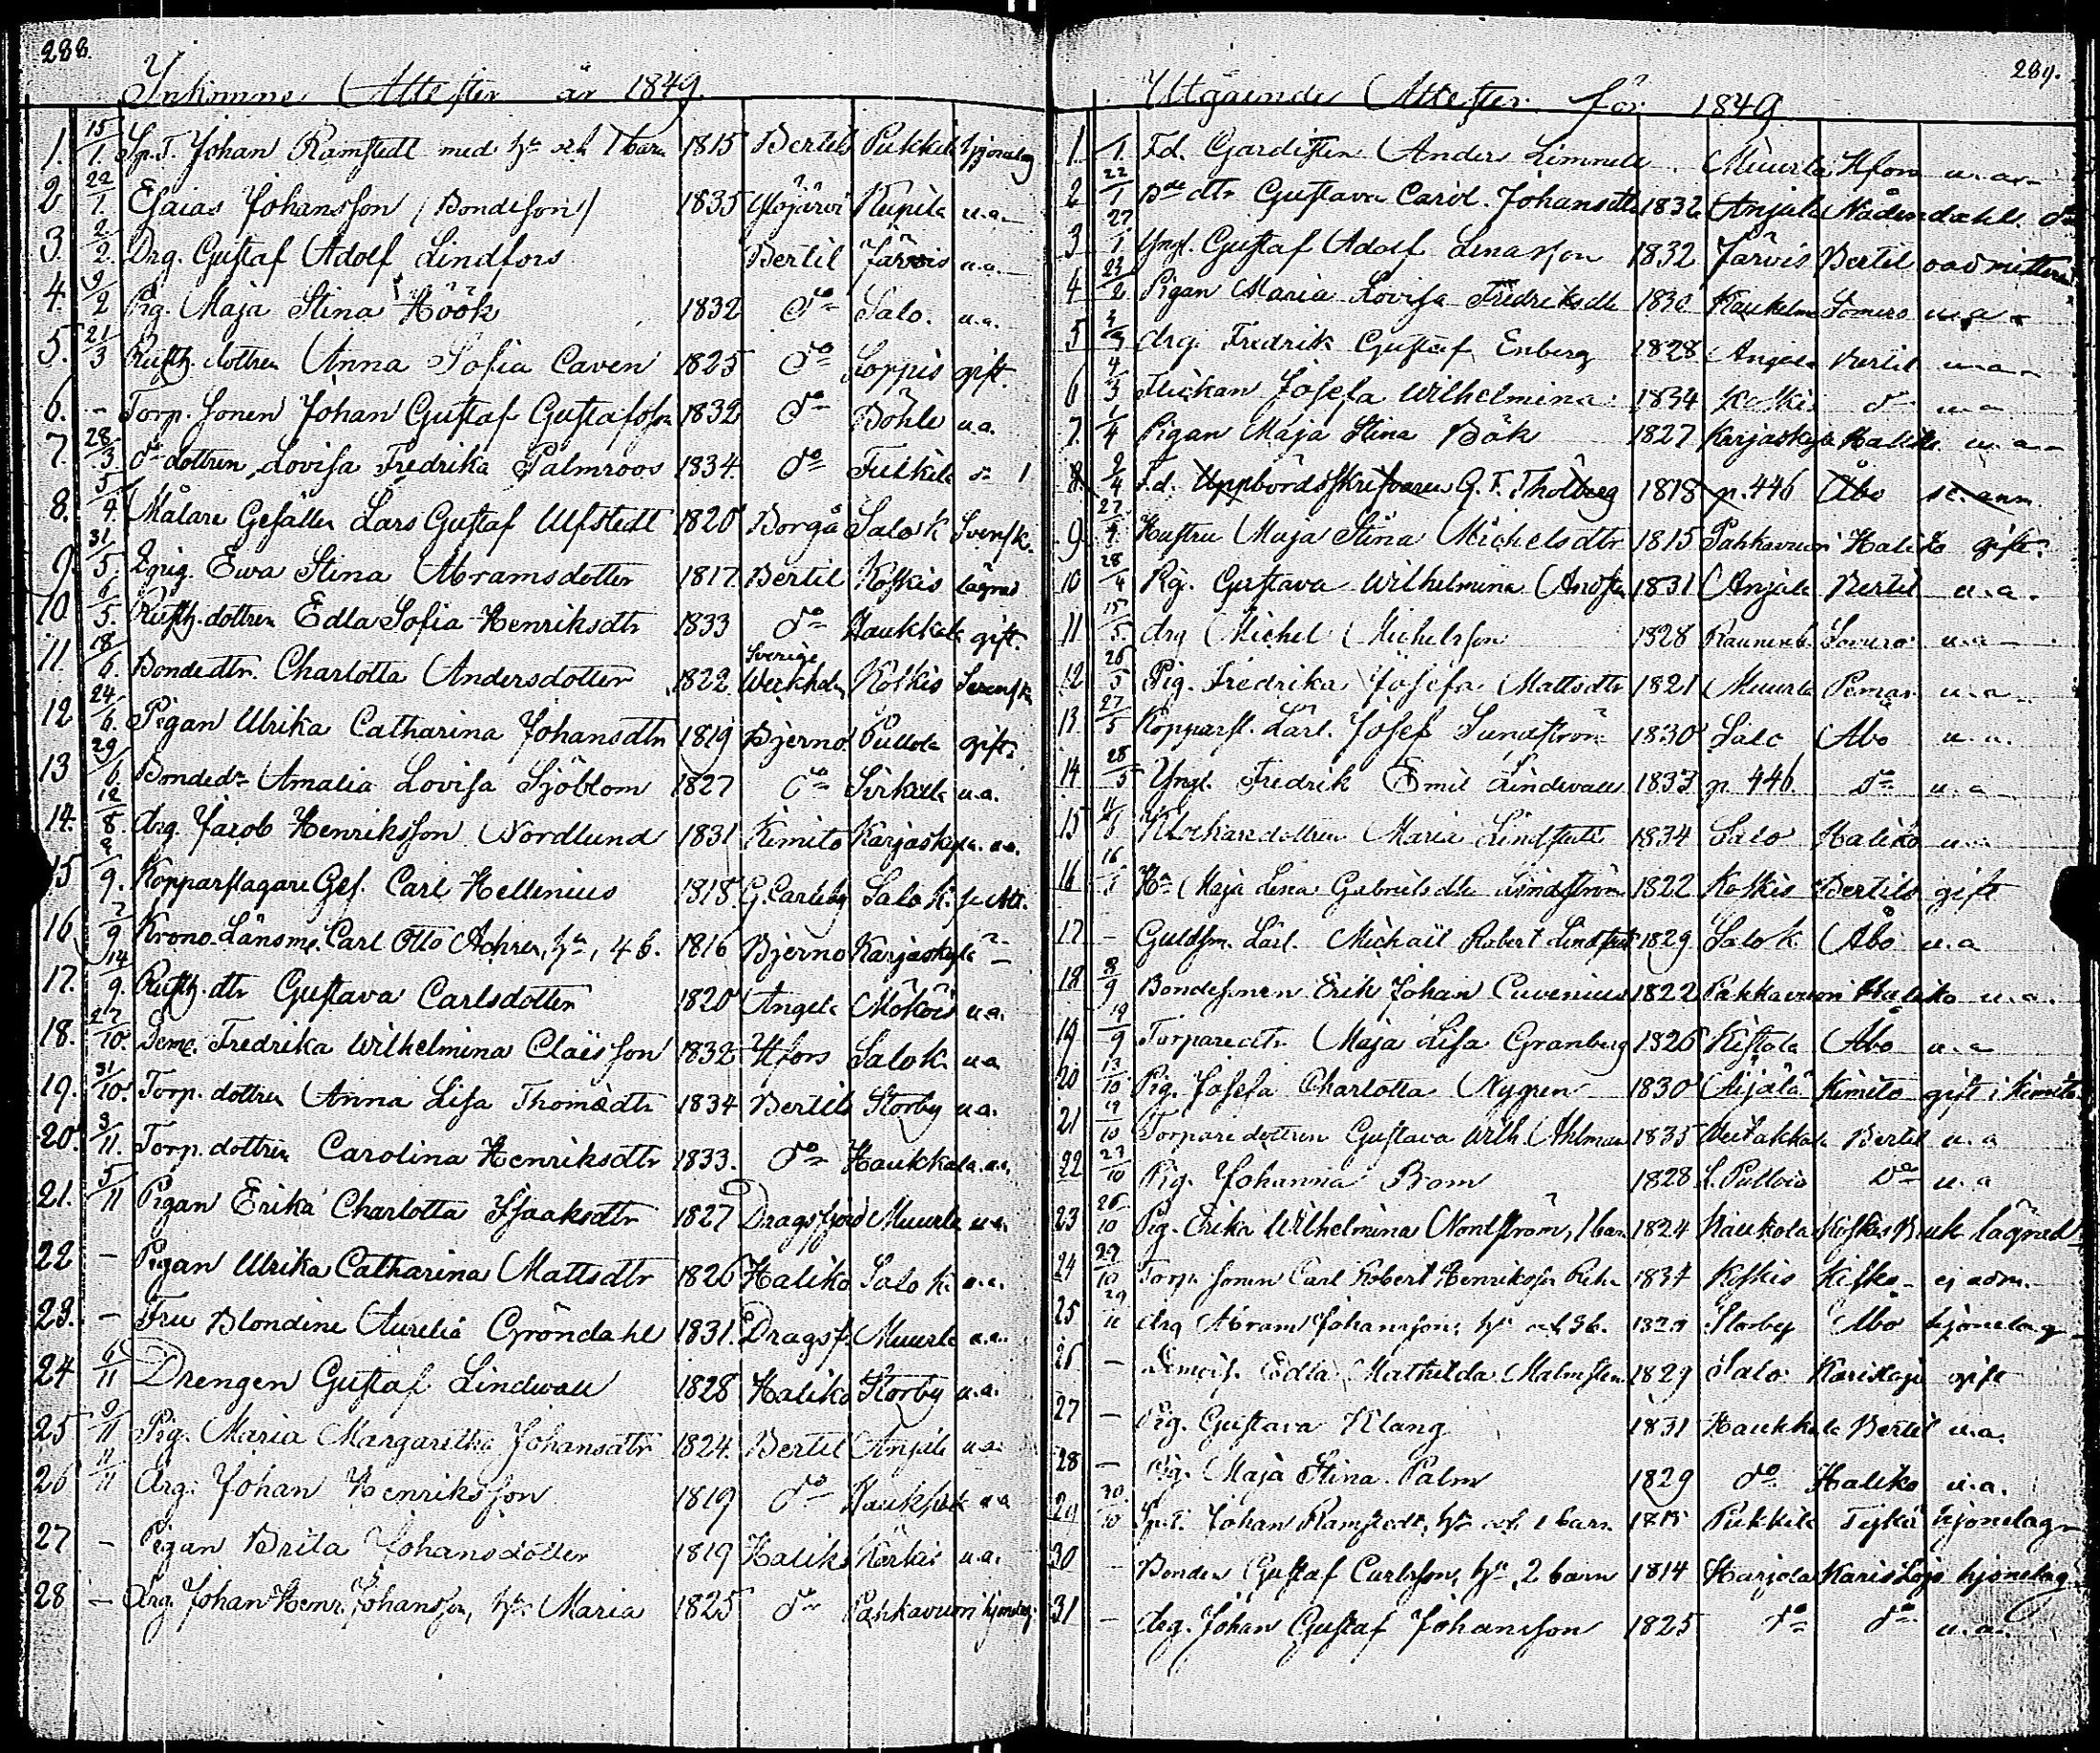 288.
Inkomne Attester år 1849.
1. 15/1. Sp.T. Johan Ramstedt med hu och 1 barn 1815 Bertils Pukkila hjonelag
2 22/1. Esaias Johansson (Bondeson) 1835 Ylöjärvi u.a.
3. 2/2. Drg. Gustaf Adolf Lindfors Bertil Järvis u.a.
4. 9/2 Pig. Maja Stina Höök 1832 do Salo. u.a.
5. 21/3 Rusth. dottren Anna Sofia Caven 1825 do Loppis gift.
6. – Torp. Sonen Johan Gustaf Gustafsson 1832 do Böhle u.a.
7. 28/3. do dottren Lovisa Fredrika Palmroos 1834. do
8. 5/4. Målare Gesällen Lars Gustaf Ulfstedt 1820 Borgå Salo K Svensk.
9. 31/5. Ewa Stina Abramsdotter 1817. Bertil Koskis lägrad
10. 6/5. Rusth. dottren Edla Sofia Henriksdtr 1833 do Haukkala gift.
11. 18/6. Bondedtr. Charlotta Andersdotter 1822. Sverige Koskis Svensk
12 24/6. Pigan Ulrika Catharina Johansdtr 1819 Bjerno Pullola gift.
13 29/6. Bondedr Amalia Lovisa Sjöblom 1827 do u.a.
14. 12/8. drg. Jacob Henriksson Nordlund 1831 Kimito Karjaskylä u.a.
15 2/9. Kopparslagare Ges. Carl Hellenius 1818 G. Carleby Salo K.
16 7/9 Krono Länsm. Carl Otto Achren, hu, 4 b. 1816 Bjerno Karjaskylä
17. 14/9. Rusth. dtr Gustava Carlsdotter 1820 Angela Mökois u.a.
18. 27/10. Dem. Fredrika Wilhelmina Claësson 1832 Hfors Salo K. u.a
19. 31/10. Torp. dottren Anna Lisa Thomèdtr 1834 Bertils Storby u.a.
20. 3/11. Torp. dottren Carolina Henriksdtr 1833. do Haukkala u.a.
21. 5/11 Pigan Erika Charlotta Isaaksdtr 1827 Dragsfjerd Muurla u.a.
22 – Pigan Ulrika Catharina Mattsdtr 1826 Haliko Salo K. u.a.
23. – Fru Blondine Aurelia Gröndahl 1831. Dragsf. Muurla u.a.
24 6/11 Drengen Gustaf Lindwall 1828 Haliko Storby u.a.
25 9/11 Pig. Maria Margaretha Johansdtr 1824. Bertil Anjala u.a.
26 11/11 drg. Johan Henriksson 1819 do Haukkala u.a
27 – Pigan Brita Johansdotter 1819 Haliko Kärkis u.a.
28 – drg. Johan Henr. Johansson, hu Maria 1825 do Pahkavuori hjonelag.
289.
Utgående Attester för 1849
1 Fd. Gardisten Anders Limnell Muurla Hfors u.a.
2 22/1 Bde dtr Gustava Carol. Johansdtr 1832 Anjala Nådendahl do
3 27/1 Yngl. Gustaf Adolf Linasson 1832 Järvis Bertil oadmitterad
4 23/2 Pigan Maria Lovisa Fredriksdtr 1830 Somero u.a.
5 drg. Fredrik Gustaf Enberg 1828 Angela Bertil u.a.
6 4/3 Flickan Josefa Wilhelmina 1834 Koskis do u.a
7. 1/4 Pigan Maja Stina Bäk 1827 Karjaskylä Haliko u.a.
8. 9/4 F.d. Uppbördsskrifvaren G. F. Tholberg 1818 p. 446 Åbo
9 27/4 Hustru Maja Stina Michelsdtr 1815 Pahkavuori Haliko gift.
10 28/4 Pig. Gustava Wilhelmina 1831 Anjala Bertil u.a.
11 15/5. drg Michel Michelsson 1828 Somero u.a
12 26/5 Pig. Fredrika Josefa Mattsdtr 1821 Muurla Pemar u.a
13. 27/5 Kopparsl. Lärl. Josef Sundström 1830 Salo Åbo u.a.
14 28/5 Yngl. Fredrik Emil Lindwall 1833 p. 446. do u.a
15 Klockaredottren Maria 1834 Salo Haliko u.a
16 Hu Maja Lena Gabrielsdtr Lindström 1822 Koskis Bertils gift
17 – Guldsm. Lärl. Michaël Robert 1829 Salo K. Åbo u.a
18 8/9 Bondesonen Erik Johan Cuvenius 1822 Pahkavuori Haliko u.a.
19 19/9 Torparedtr. Maja Lisa Granberg 1826 Kistola Åbo u.a
20 13/10 Pig. Josefa Charlotta Nygren 1830 Aijälä Kimito gift i Kimito
21 19/10 Torpare dottren Gustava Wilh. Ahlman 1835 Bertil u.a
22 23/10 Pig. Johanna Brom 1828 do u.a
23 26/10 Pig. Erika Wilhelmina Nordström, 1 barn 1824 Haukkala Kiskos Bruk lägrad
24 29/10 Torp. sonen Carl Robert Henriksson 1834 Koskis Kisko ej adm.
25 29/11 drg Abram Johansson, hu och 3 b. Storby Åbo hjonelag
26 – Demois. Edla Mathilda Malmsten 1829 Salo Karislojo gift
27 – Pig. Gustava Klang 1831 Haukkala Bertil u.a.
28 – Pig. Maja Stina Palm 1829 do Haliko u.a.
29 30/10 Sp.T. Johan Ramstedt, hu och 1 barn 1815 Pukkila hjonelag
30 – Bonden Gustaf Carlsson, hu, 2 barn 1814 Harjola Karislojo hjonelag
31 – drg. Johan Gustaf Johansson 1825 do do u.a.